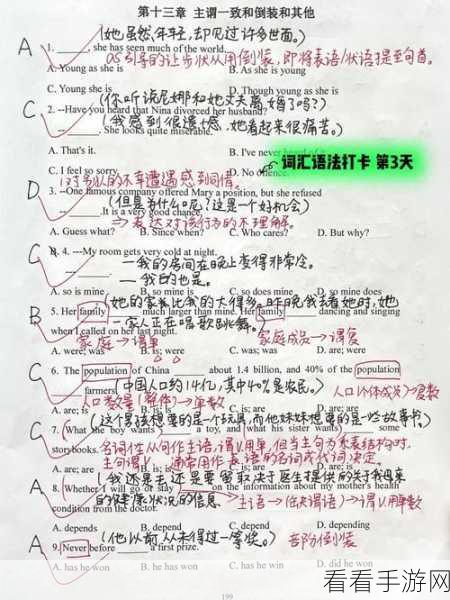 第十三章 主谓一致和倒装和其他
(她虽然年轻,却见过许多世面。)
A 1. ____, she has seen much of the world.
as引导的让步状从用倒装,即将表语/状语提至句首。
A. Young as she is B. As she is young
C. Young she is D. Though young as she is
(你听说尼娜和她丈夫离婚了吗?)
C 2. --Have you heard that Nina divorced her husband?
(我感到很遗憾,她看起来很痛苦。)
____. She looks quite miserable.
A. That's it. B. I've never heard of it.
词汇语法打卡 第3天
C. I feel so sorry. D. No
对别人的不幸遭遇感到同情。
D 3. --One famous company offered Mary a position, but she refused
(但是为什么呢?这是一个好机会)
____.It is a very good chance.
→表达对该行为的不理解。
A. Guess what? B. Since when? C. Who cares? D. But why?
C 4. ---My room gets very cold at night.
—我的房间在晚上变得非常冷。
—我的也是。
A. so is mine B. so mine is C. so does mine D. so mine does
(她的家我比我的大得多。昨晚我去看她时,她
B 5. Her family ____ much larger than mine. Her family ____ dancing and singing
一家人正在唱歌跳舞。)
when I called on her last night.
家庭→谓单 家庭成员→谓复
A. were; was B. is; were C. was; was D. were; were
C 6. The population of China ____ about 1.4 billion, and 40% of the population
____ farmers.
(中国人口约14亿,其中40%是农民。)
人口数量(整体)→单数
人口(个体成员)→复数
A. are; is
(这个男孩想要的是一个玩具,而他妹妹想要的是一些故事书)
C 7. What the boy wants ____ a toy, and what his sister wants ____ some
story books.
名词性从句作主语,谓V.用单,但当主句为系表结构时,
主句谓V.通常用作表语的名词或代词决定。
A. are; are B. is; is C. is; are D. are; is
(我还是去还是要留取决于医生提供的关于我母亲
A 8. Whether I will go or stay ____ on the information about my mother's health
的健康状况的信息)
condition from the doctor.
→主语→(缺谓语)→谓V.用单数
A. depends B. depend C. depended D. depending
(他以前从未得过一等奖。)
A 9. Never before ____ a first prize.
部份倒装
A. has he won B. he has won C. he had won D. did he won
199
看看手游网